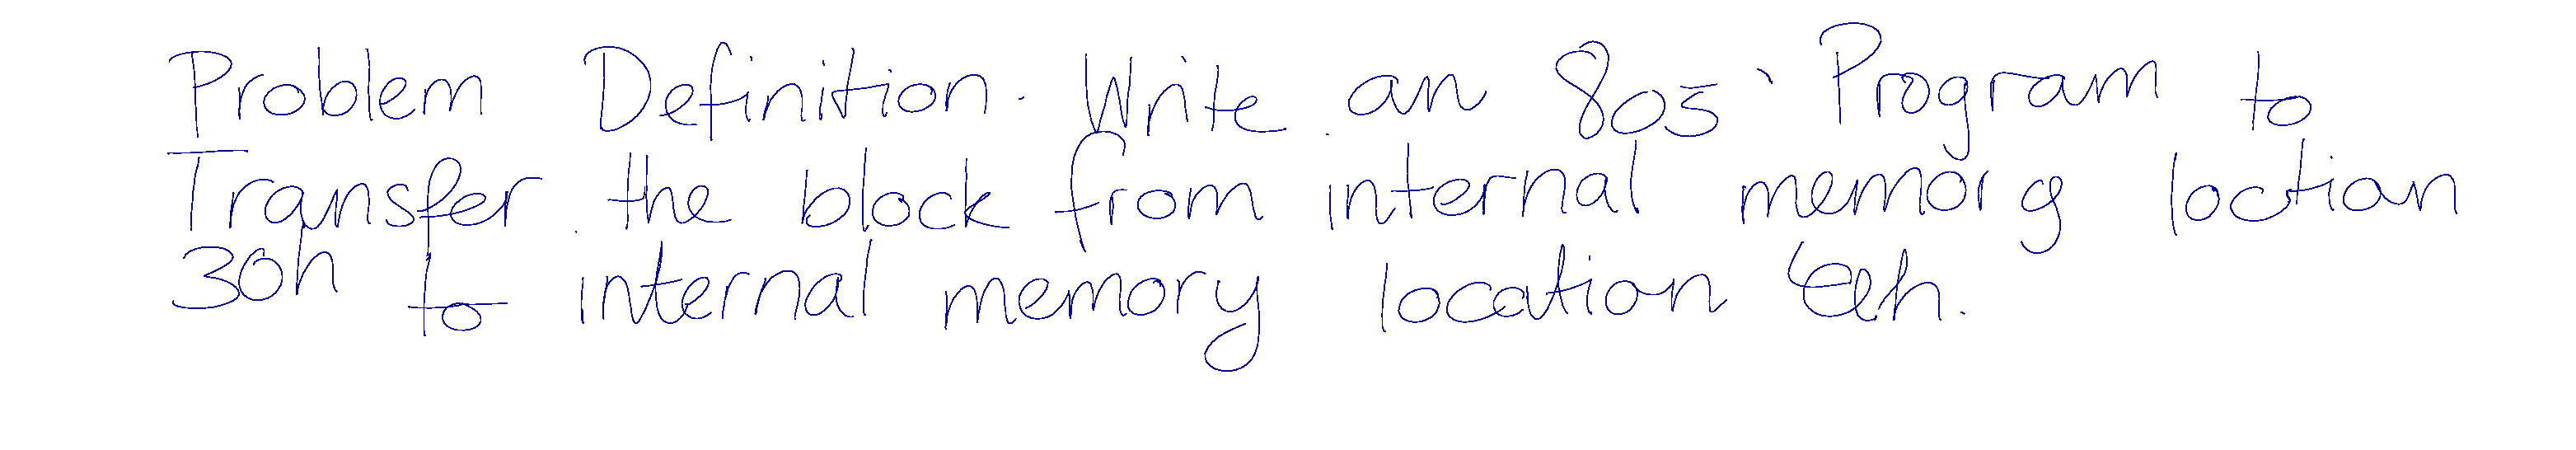 Problem Definition. Write an 805` Program to
Transfer the block from internal memory loctian
30h to internal memory location